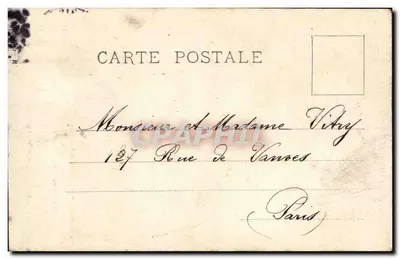 CARTE POSTALE
Monsieur et Madame Vitry
127 Rue de Vanves
(Paris)